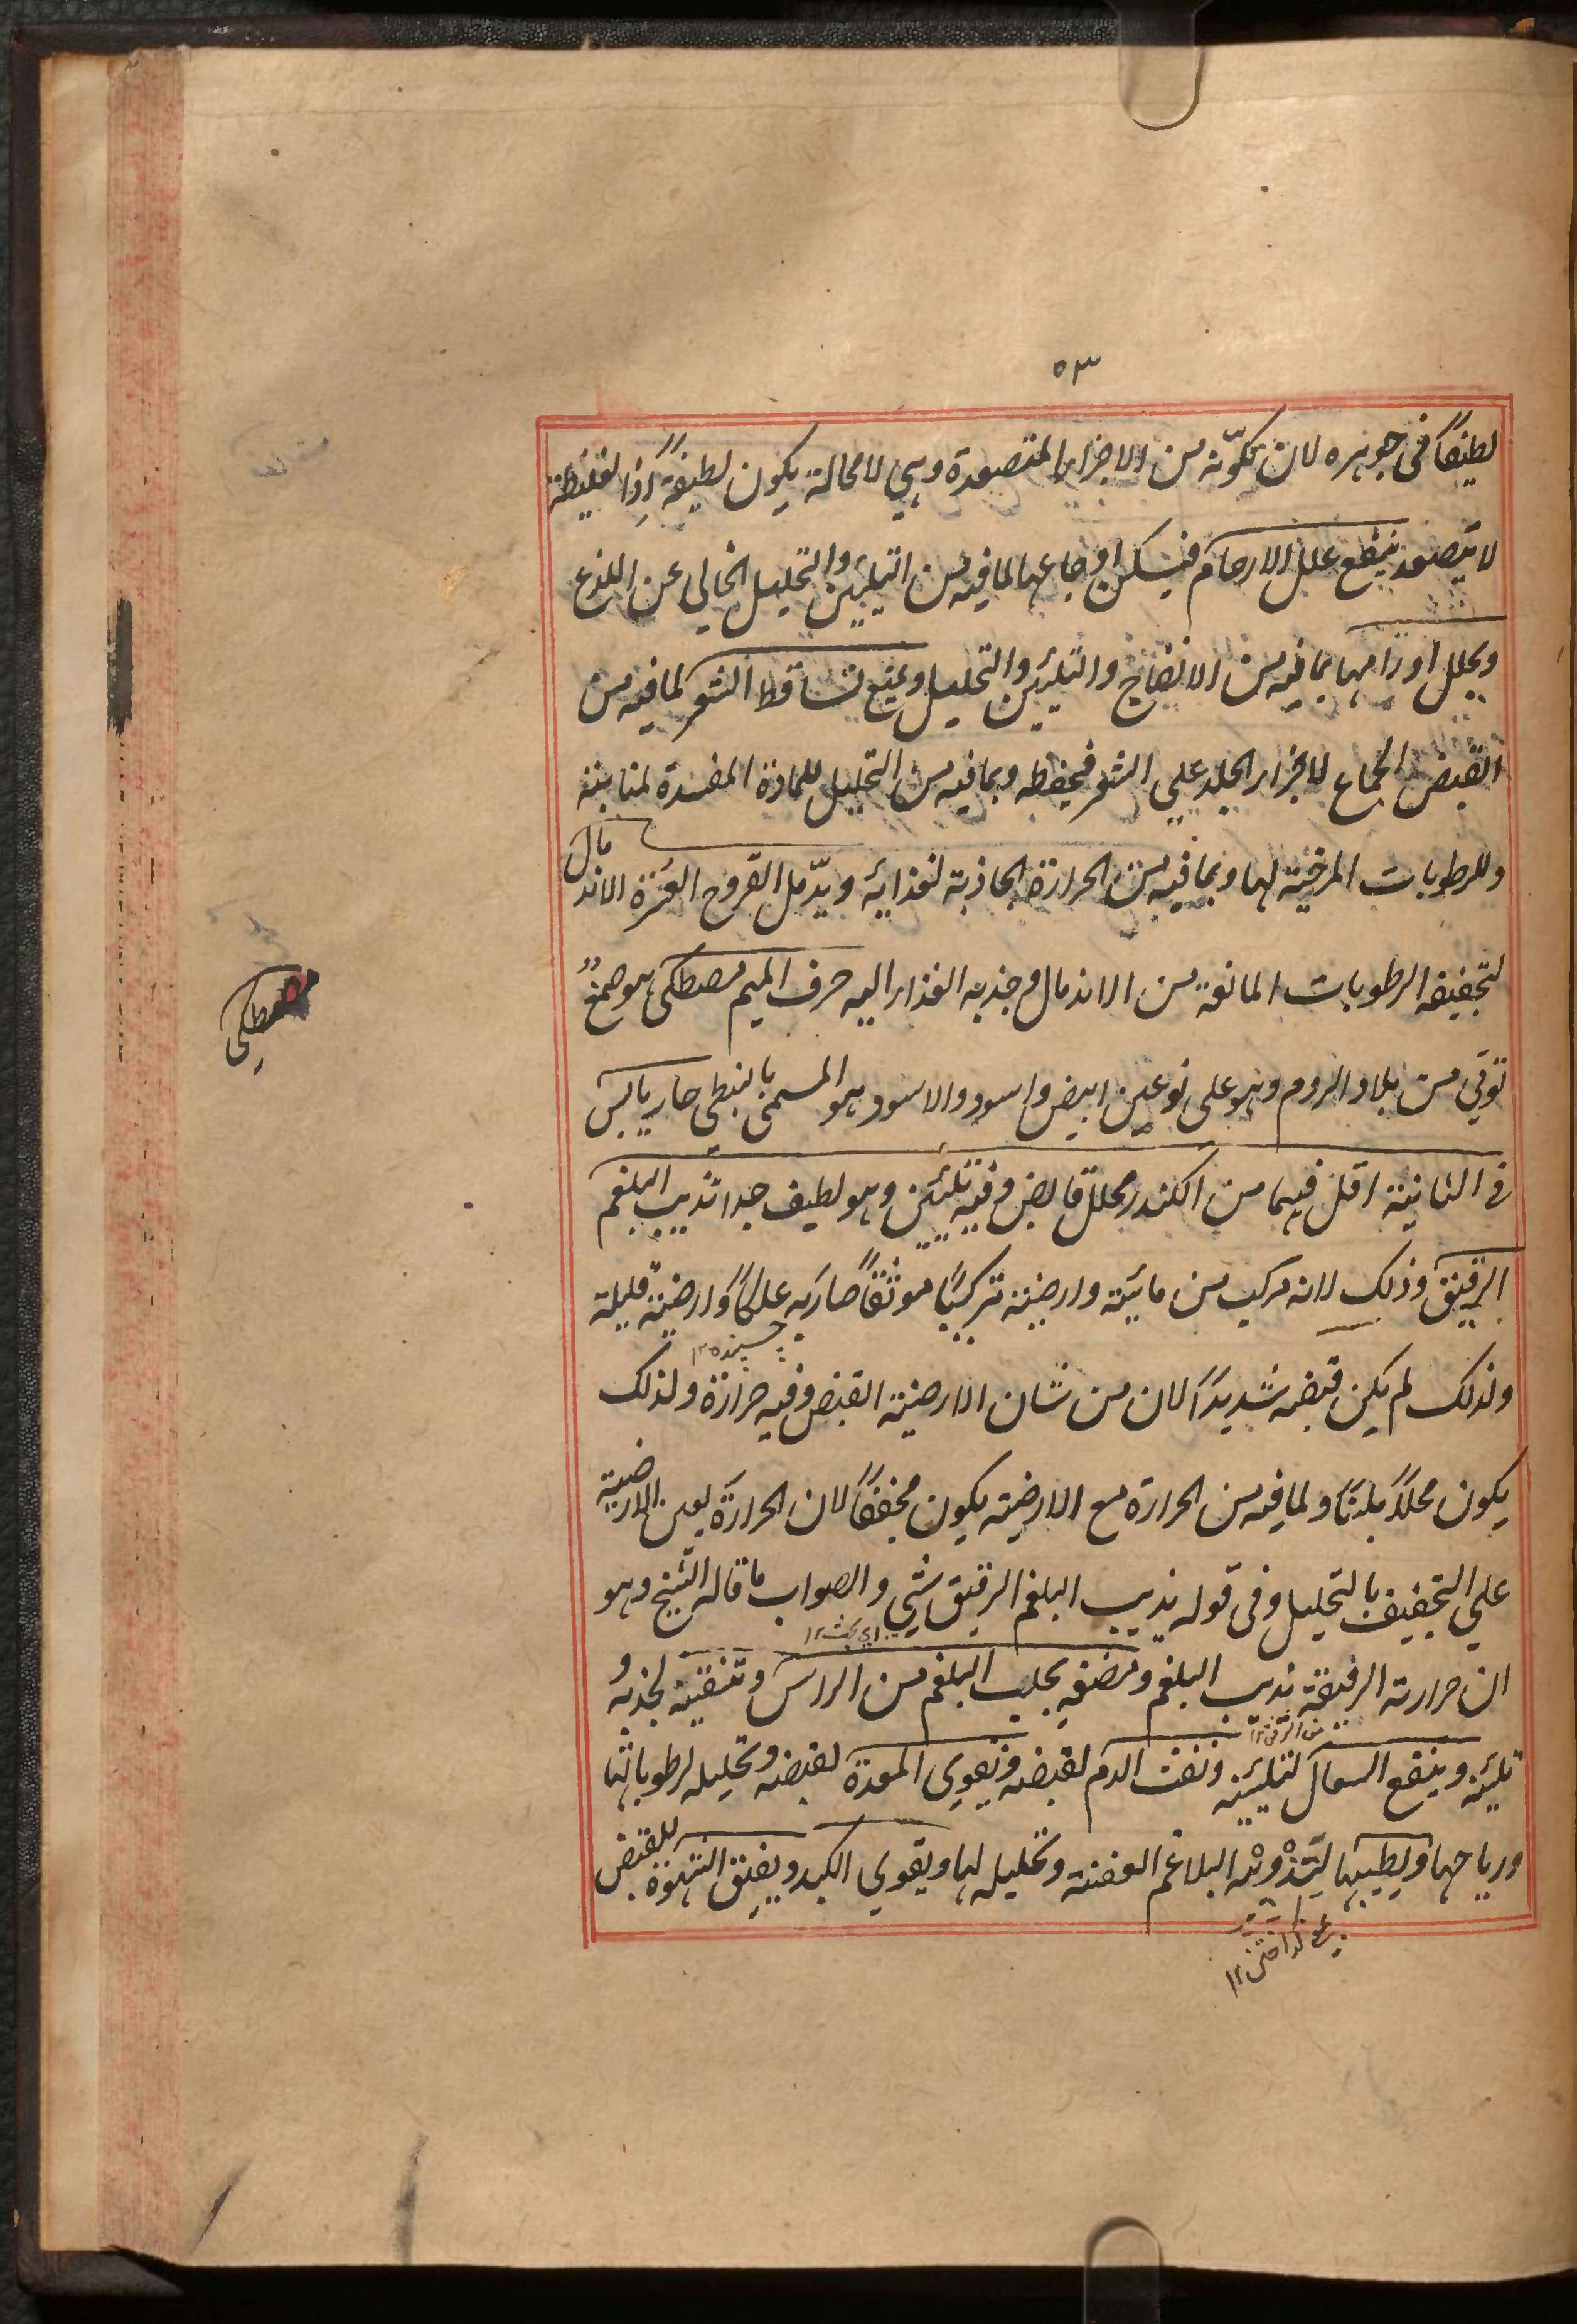 ٥٣
لطيفًا فى جوهره لان تكوّنه من الاجزاء المتصعدة وهي لا محالة يكون لطيفة اذا لغليظة
لا يتصعد ينفع علل الارحام فيسكن اوجاعها لما فيه من التليين والتحليل الخالى عن اللذع
ويحلل اورامها بما فيه من الانضاج والتليين والتحليل ويمنع تساقط الشعر لما فيه من
القبض الجماع لاجزاء الجلد على الشعر فيحفظه وبما فيه من التحليل للمادة المفسدة لمنابته
وللرطوبات المرخية لها وبما فيه من الحرارة الجاذبة لغذائه ويدّمل القروح العسرة الاندمال
لتجفيفه الرطوبات المانعة من الاندمال وجذبه الغذاء اليه حرف الميم مصطكى هو صمغ
توتي من بلاد الروم وهو على نوعين ابيض واسود والاسود هو المسمى بالنبطي حار يابس
فى الثانية اقل فيهما من الكندر محلل قابض وفيه تليين وهو لطيف جدا تذيب البلغم
الرقيق وذلك لانه مركب من مائية وارضية تركيبًا موثقًا صار به علكًا وارضيته قليلة
چسپنده ١٢
ولذلك لم يكن قبضه شديدًا لان من شان الارضية القبض وفيه حرارة ولذلك
يكون محللًا ملينًا ولما فيه من الحرارة مع الارضية يكون مجففًا لان الحرارة يعين الارضية
على التجفيف بالتحليل وفى قوله يذيب البلغم الرقيق شي والصواب ما قاله الشيخ وهو
ان حرارته الرقيقة تذيب البلغم ومضغه يجلب البلغم من الراس وتنقيه لجذبه و
تليينه وينفع السعال لتليينه ونفث الدم لقبضه وتقوي المعدة لقبضه وتحليله لرطوباتها
ورياحها ويطيبها لتذويبه البلاغم العفنة وتحليله لها ويقوي الكبد ويفتق الشهوة للقبض
گداختن ١٢
مصطكى